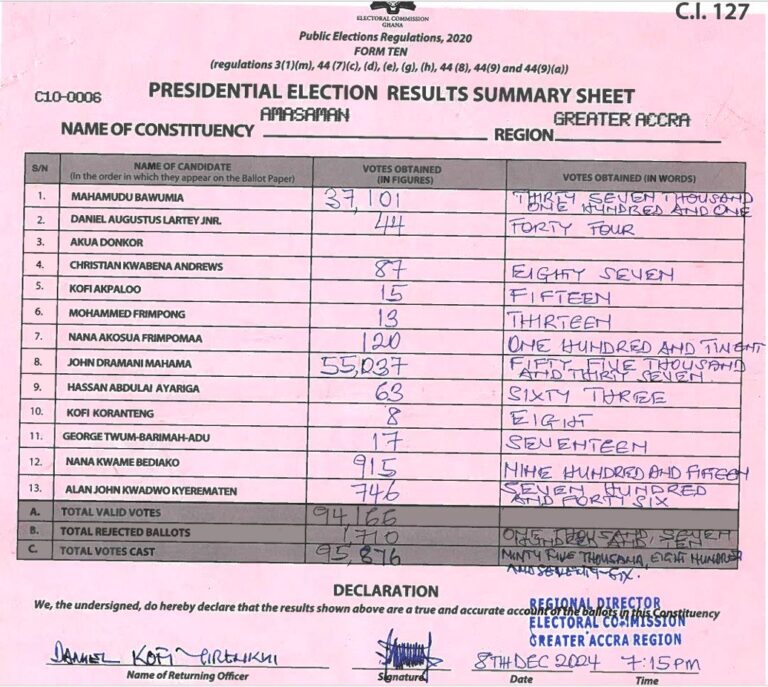 ELECTORAL COMMISSION
GHANA
C.I. 127
Public Elections Regulations, 2020
FORM TEN
(regulations 3(1)(m), 44 (7)(c), (d), (e), (g), (h), 44 (8), 44(9) and 44(9)(a))
C10-0006
PRESIDENTIAL ELECTION RESULTS SUMMARY SHEET
NAME OF CONSTITUENCY AMASAMAN REGION GREATER ACCRA
S/N NAME OF CANDIDATE (In the order in which they appear on the Ballot Paper) VOTES OBTAINED (IN FIGURES) VOTES OBTAINED (IN WORDS)
1. MAHAMUDU BAWUMIA 37,101 THIRTY SEVEN THOUSAND ONE HUNDRED AND ONE
2. DANIEL AUGUSTUS LARTEY JNR. 44 FORTY FOUR
3. AKUA DONKOR
4. CHRISTIAN KWABENA ANDREWS 87 EIGHTY SEVEN
5. KOFI AKPALOO 15 FIFTEEN
6. MOHAMMED FRIMPONG 13 THIRTEEN
7. NANA AKOSUA FRIMPOMAA 120 ONE HUNDRED AND TWENT
8. JOHN DRAMANI MAHAMA 55,037 FIFTY FIVE THOUSAND AND THIRTY SEVEN
9. HASSAN ABDULAI AYARIGA 63 SIXTY THREE
10. KOFI KORANTENG 8 EIGHT
11. GEORGE TWUM-BARIMAH-ADU 17 SEVENTEEN
12. NANA KWAME BEDIAKO 915 NINE HUNDRED AND FIFTEEN
13. ALAN JOHN KWADWO KYEREMATEN 746 SEVEN HUNDRED AND FORTY SIX
A. TOTAL VALID VOTES 94,166
B. TOTAL REJECTED BALLOTS 1,710 ONE THOUSAND, SEVEN HUNDRED AND TEN
C. TOTAL VOTES CAST 95,876 NINTY FIVE THOUSAND, EIGHT HUNDRED AND SEVENTY-SIX.
DECLARATION
We, the undersigned, do hereby declare that the results shown above are a true and accurate account of the ballots in this Constituency
REGIONAL DIRECTOR
ELECTORAL COMMISSION
GREATER ACCRA REGION
DANIEL KOFI 8TH DEC 2024 7:15PM
Name of Returning Officer Signature Date Time